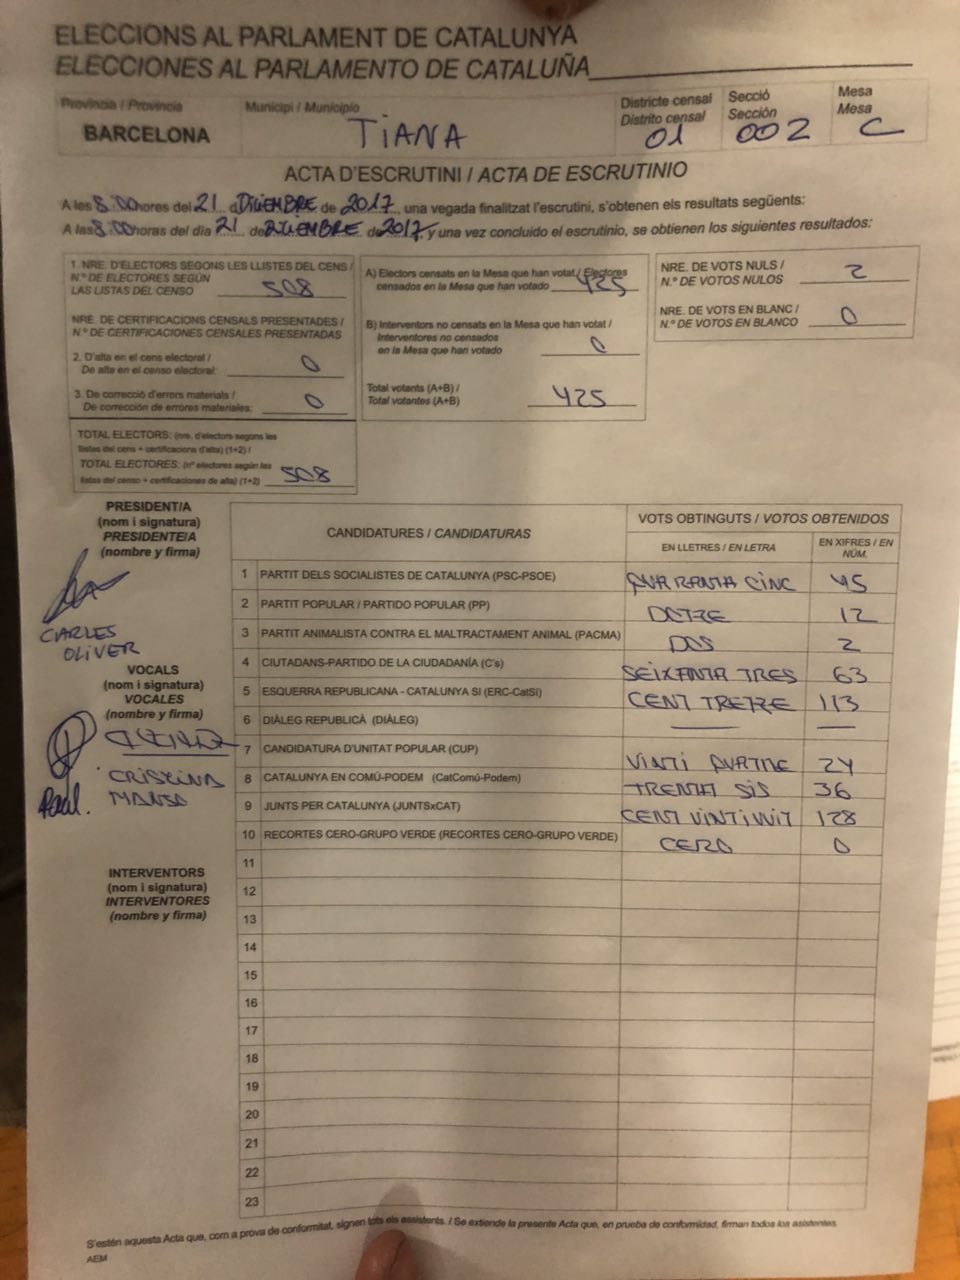 ELECCIONS AL PARLAMENT DE CATALUNYA
ELECCIONES AL PARLAMENTO DE CATALUÑA
Província / Provincia
BARCELONA
Municipi / Municipio
TIANA
Districte censal
Distrito censal
01
Secció
Sección
002
Mesa
Mesa
C
ACTA D'ESCRUTINI / ACTA DE ESCRUTINIO
A les 8:00 hores del 21 d DICIEMBRE de 2017, una vegada finalitzat l'escrutini, s'obtenen els resultats següents:
A las 8:00 horas del día 21 de DICIEMBRE de 2017, y una vez concluido el escrutinio, se obtienen los siguientes resultados:
1. NRE. D'ELECTORS SEGONS LES LLISTES DEL CENS /
N.º DE ELECTORES SEGÚN
LAS LISTAS DEL CENSO 508
NRE. DE CERTIFICACIONS CENSALS PRESENTADES /
N.º DE CERTIFICACIONES CENSALES PRESENTADAS
2. D'alta en el cens electoral /
De alta en el censo electoral: 0
3. De correcció d'errors materials /
De corrección de errores materiales: 0
TOTAL ELECTORS: (nre. d'electors segons les
llistes del cens + certificacions d'alta) (1+2) /
TOTAL ELECTORES: (nº electores según las
listas del censo + certificaciones de alta) (1+2) 508
A) Electors censats en la Mesa que han votat / Electores
censados en la Mesa que han votado 425
B) Interventors no censats en la Mesa que han votat /
Interventores no censados
en la Mesa que han votado 0
Total votants (A+B) /
Total votantes (A+B) 425
NRE. DE VOTS NULS /
N.º DE VOTOS NULOS 2
NRE. DE VOTS EN BLANC /
N.º DE VOTOS EN BLANCO 0
PRESIDENT/A
(nom i signatura)
PRESIDENTE/A
(nombre y firma)
CARLES
OLIVER
VOCALS
(nom i signatura)
VOCALES
(nombre y firma)
CRISTINA
MANSO
Raúl.
INTERVENTORS
(nom i signatura)
INTERVENTORES
(nombre y firma)
CANDIDATURES / CANDIDATURAS
VOTS OBTINGUTS / VOTOS OBTENIDOS
EN LLETRES / EN LETRA
EN XIFRES / EN
NÚM.
1 PARTIT DELS SOCIALISTES DE CATALUNYA (PSC-PSOE) QUARANTA CINC 45
2 PARTIT POPULAR / PARTIDO POPULAR (PP) DOTZE 12
3 PARTIT ANIMALISTA CONTRA EL MALTRACTAMENT ANIMAL (PACMA) DOS 2
4 CIUTADANS-PARTIDO DE LA CIUDADANÍA (C's) SEIXANTA TRES 63
5 ESQUERRA REPUBLICANA - CATALUNYA SI (ERC-CatSí) CENT TRETZE 113
6 DIÀLEG REPUBLICÀ (DIÀLEG)
7 CANDIDATURA D'UNITAT POPULAR (CUP) VINTI QUATRE 24
8 CATALUNYA EN COMÚ-PODEM (CatComú-Podem) TRENTA SIS 36
9 JUNTS PER CATALUNYA (JUNTSxCAT) CENT VINTIVUIT 128
10 RECORTES CERO-GRUPO VERDE (RECORTES CERO-GRUPO VERDE) CERO 0
11
12
13
14
15
16
17
18
19
20
21
22
23
S'estén aquesta Acta que, com a prova de conformitat, signen tots els assistents. / Se extiende la presente Acta que, en prueba de conformidad, firman todos los asistentes.
AEM